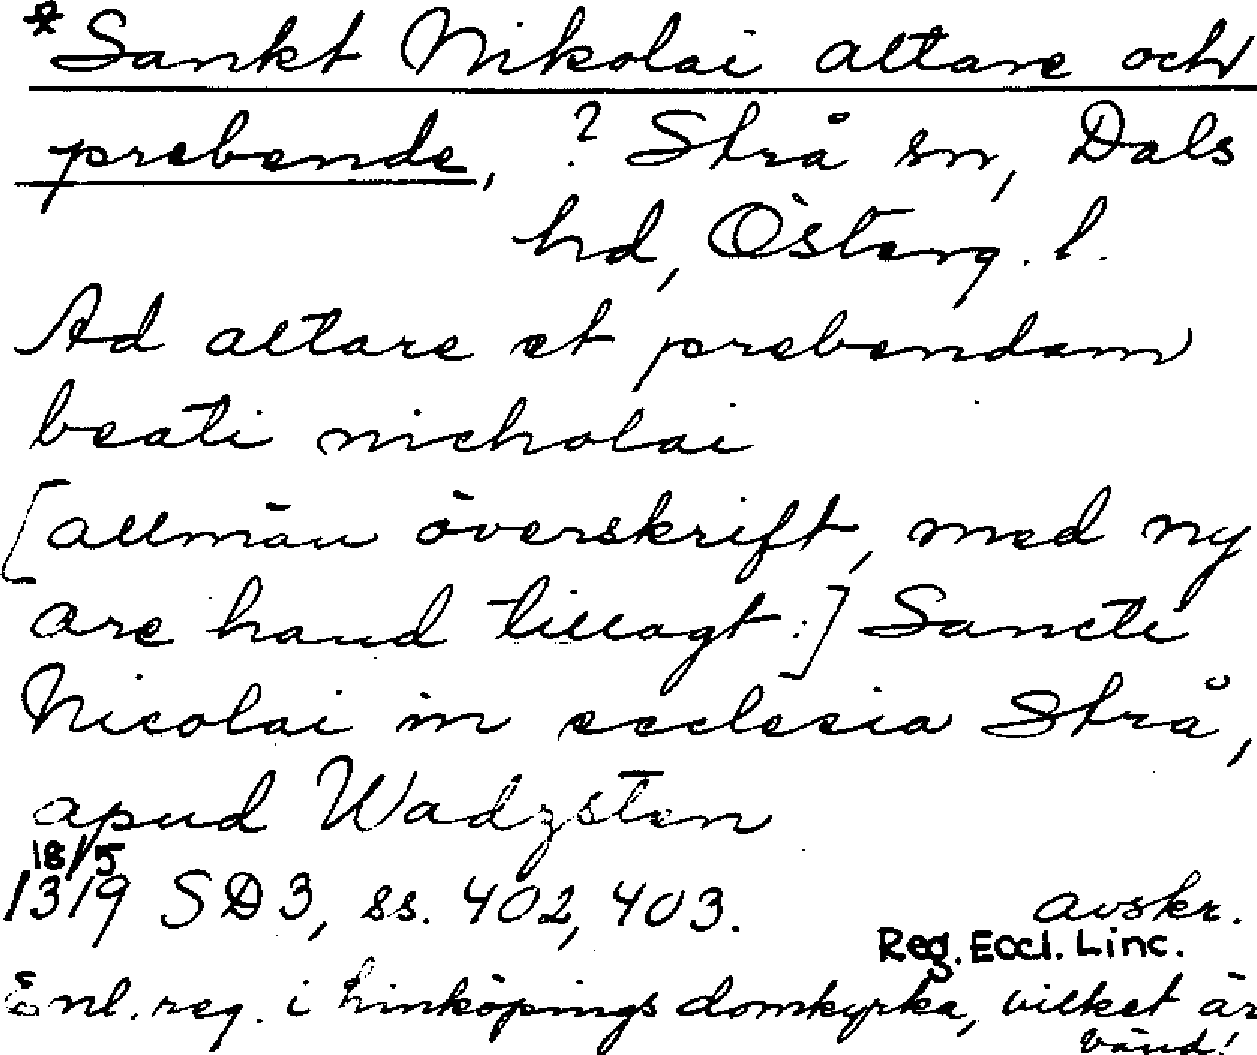 *Sankt Nikolai altare och
prebende, ? Strå sn, Dals
hd, Österg. l.
Ad altare et prebendam
beati nicholai
[allmän överskrift, med ny
are hand tillagt:] Sancti
Nicolai in ecclesia Strå,
apud Wadzsten
18/5
1319 SD3, ss. 402, 403. avskr.
Reg. Eccl. Linc.
Enl. reg. i Linköpings domkyrka, vilket är
vänd!